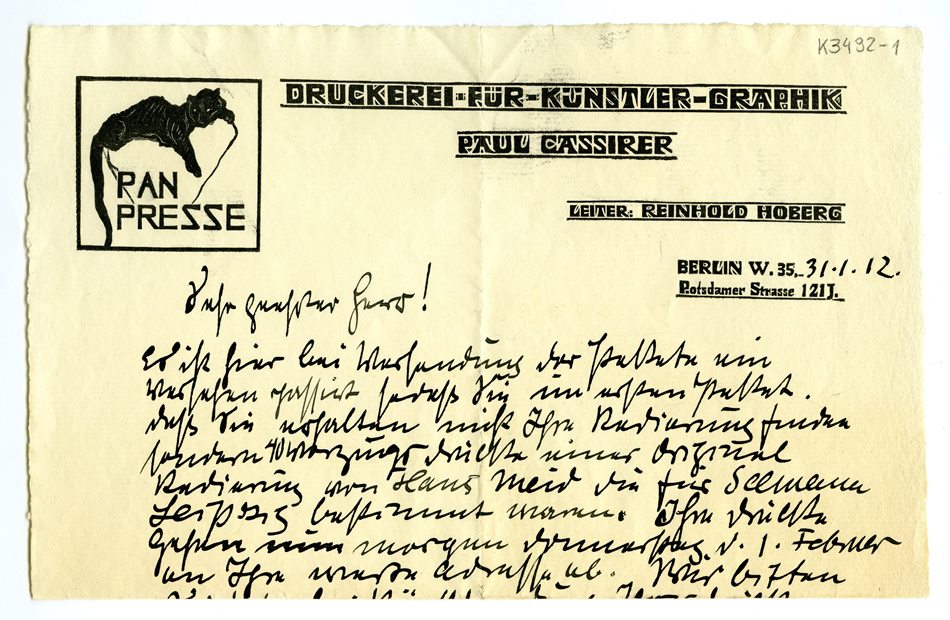 K3492-1
PAN
PRESSE
DRUCKEREI-FÜR-KÜNSTLER-GRAPHIK
PAUL CASSIRER
LEITER: REINHOLD HOBERG
BERLIN W. 35, 31.1.12.
Potsdamer Strasse 121J.
Sehr geehrter Herr!
Es ist hier bei Versendung der Pakete ein
Versehen passirt sodaß Sie im ersten Paket.
daß Sie erhalten nicht Ihre Radierung finden
sondern 40 Vorzugsdrücke einer Original
Radierung von Hans Meid die für Seemann
Leipzig bestimmt waren. Ihre Drücke
gehen morgen Donnerstag d. 1. Februar
an Ihre werte Adresse ab. Wir bitten